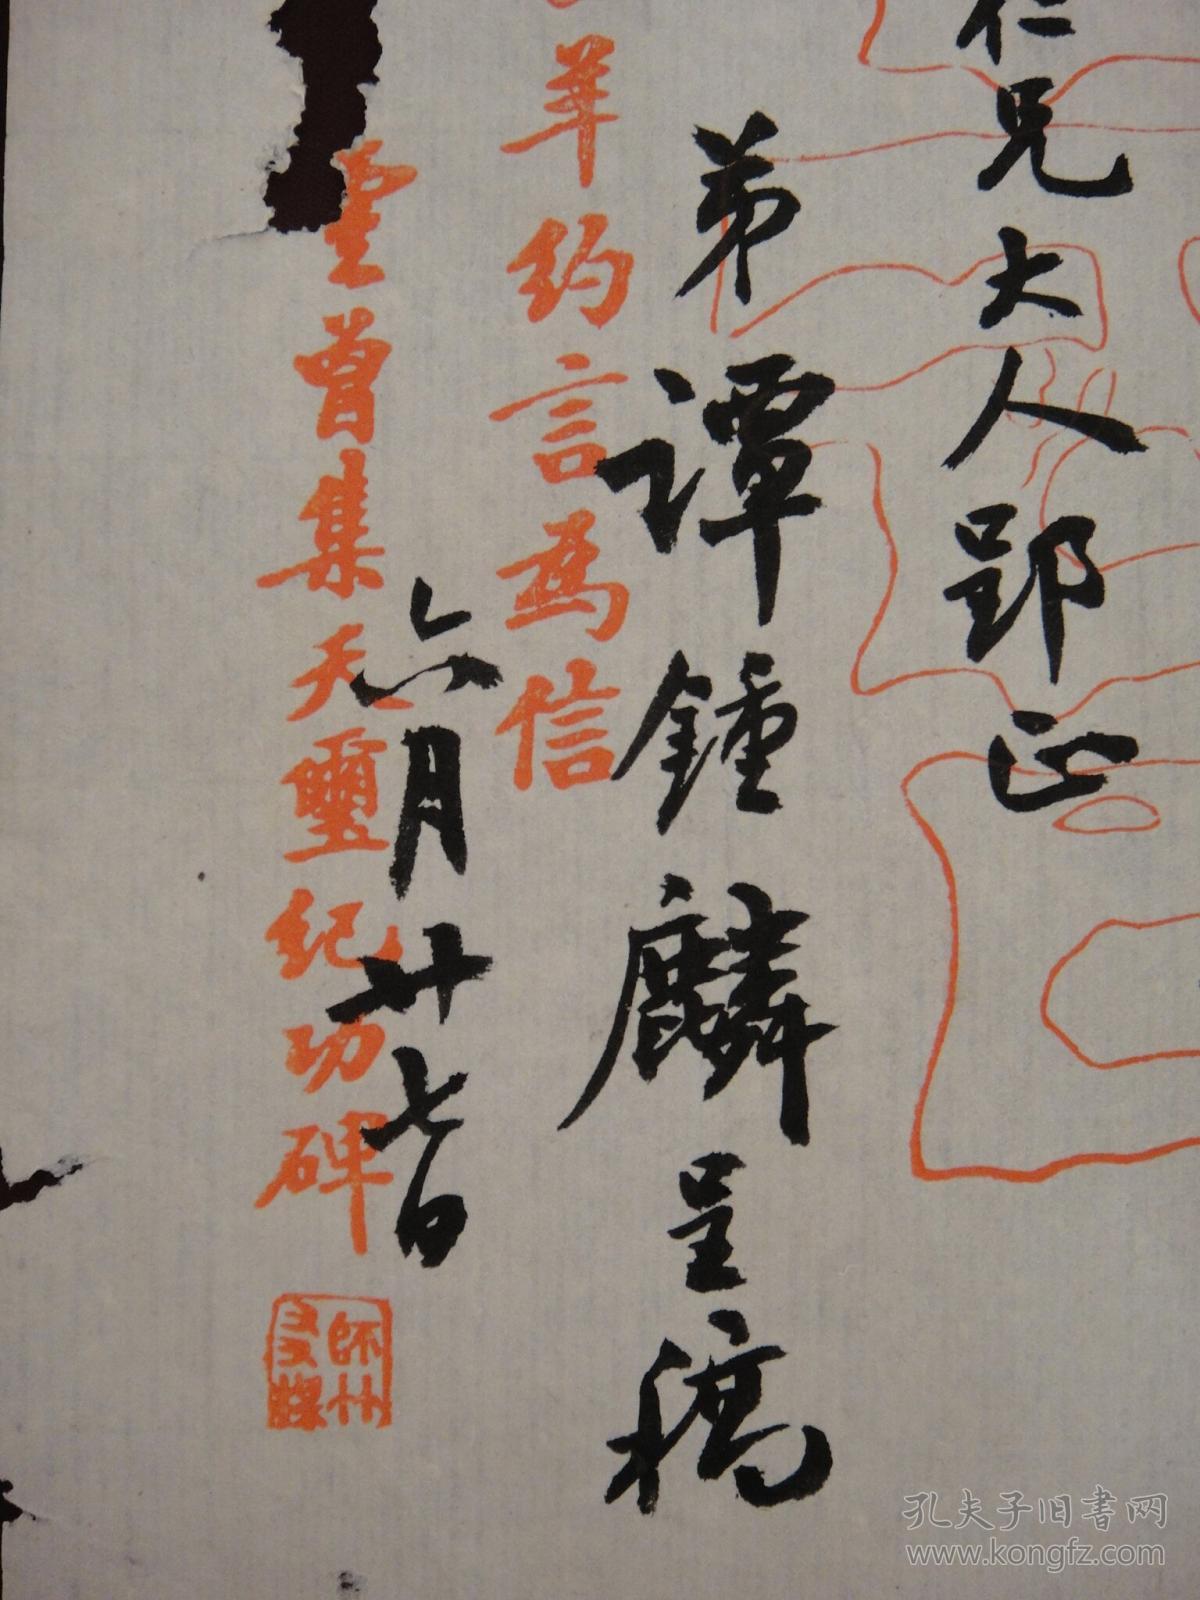 仁兄大人郢正
弟譚鍾麟呈稿
六月廿七日
羊約言為信
曾集天璽紀功碑
師竹
友某
孔夫子旧书网
www.kongfz.com